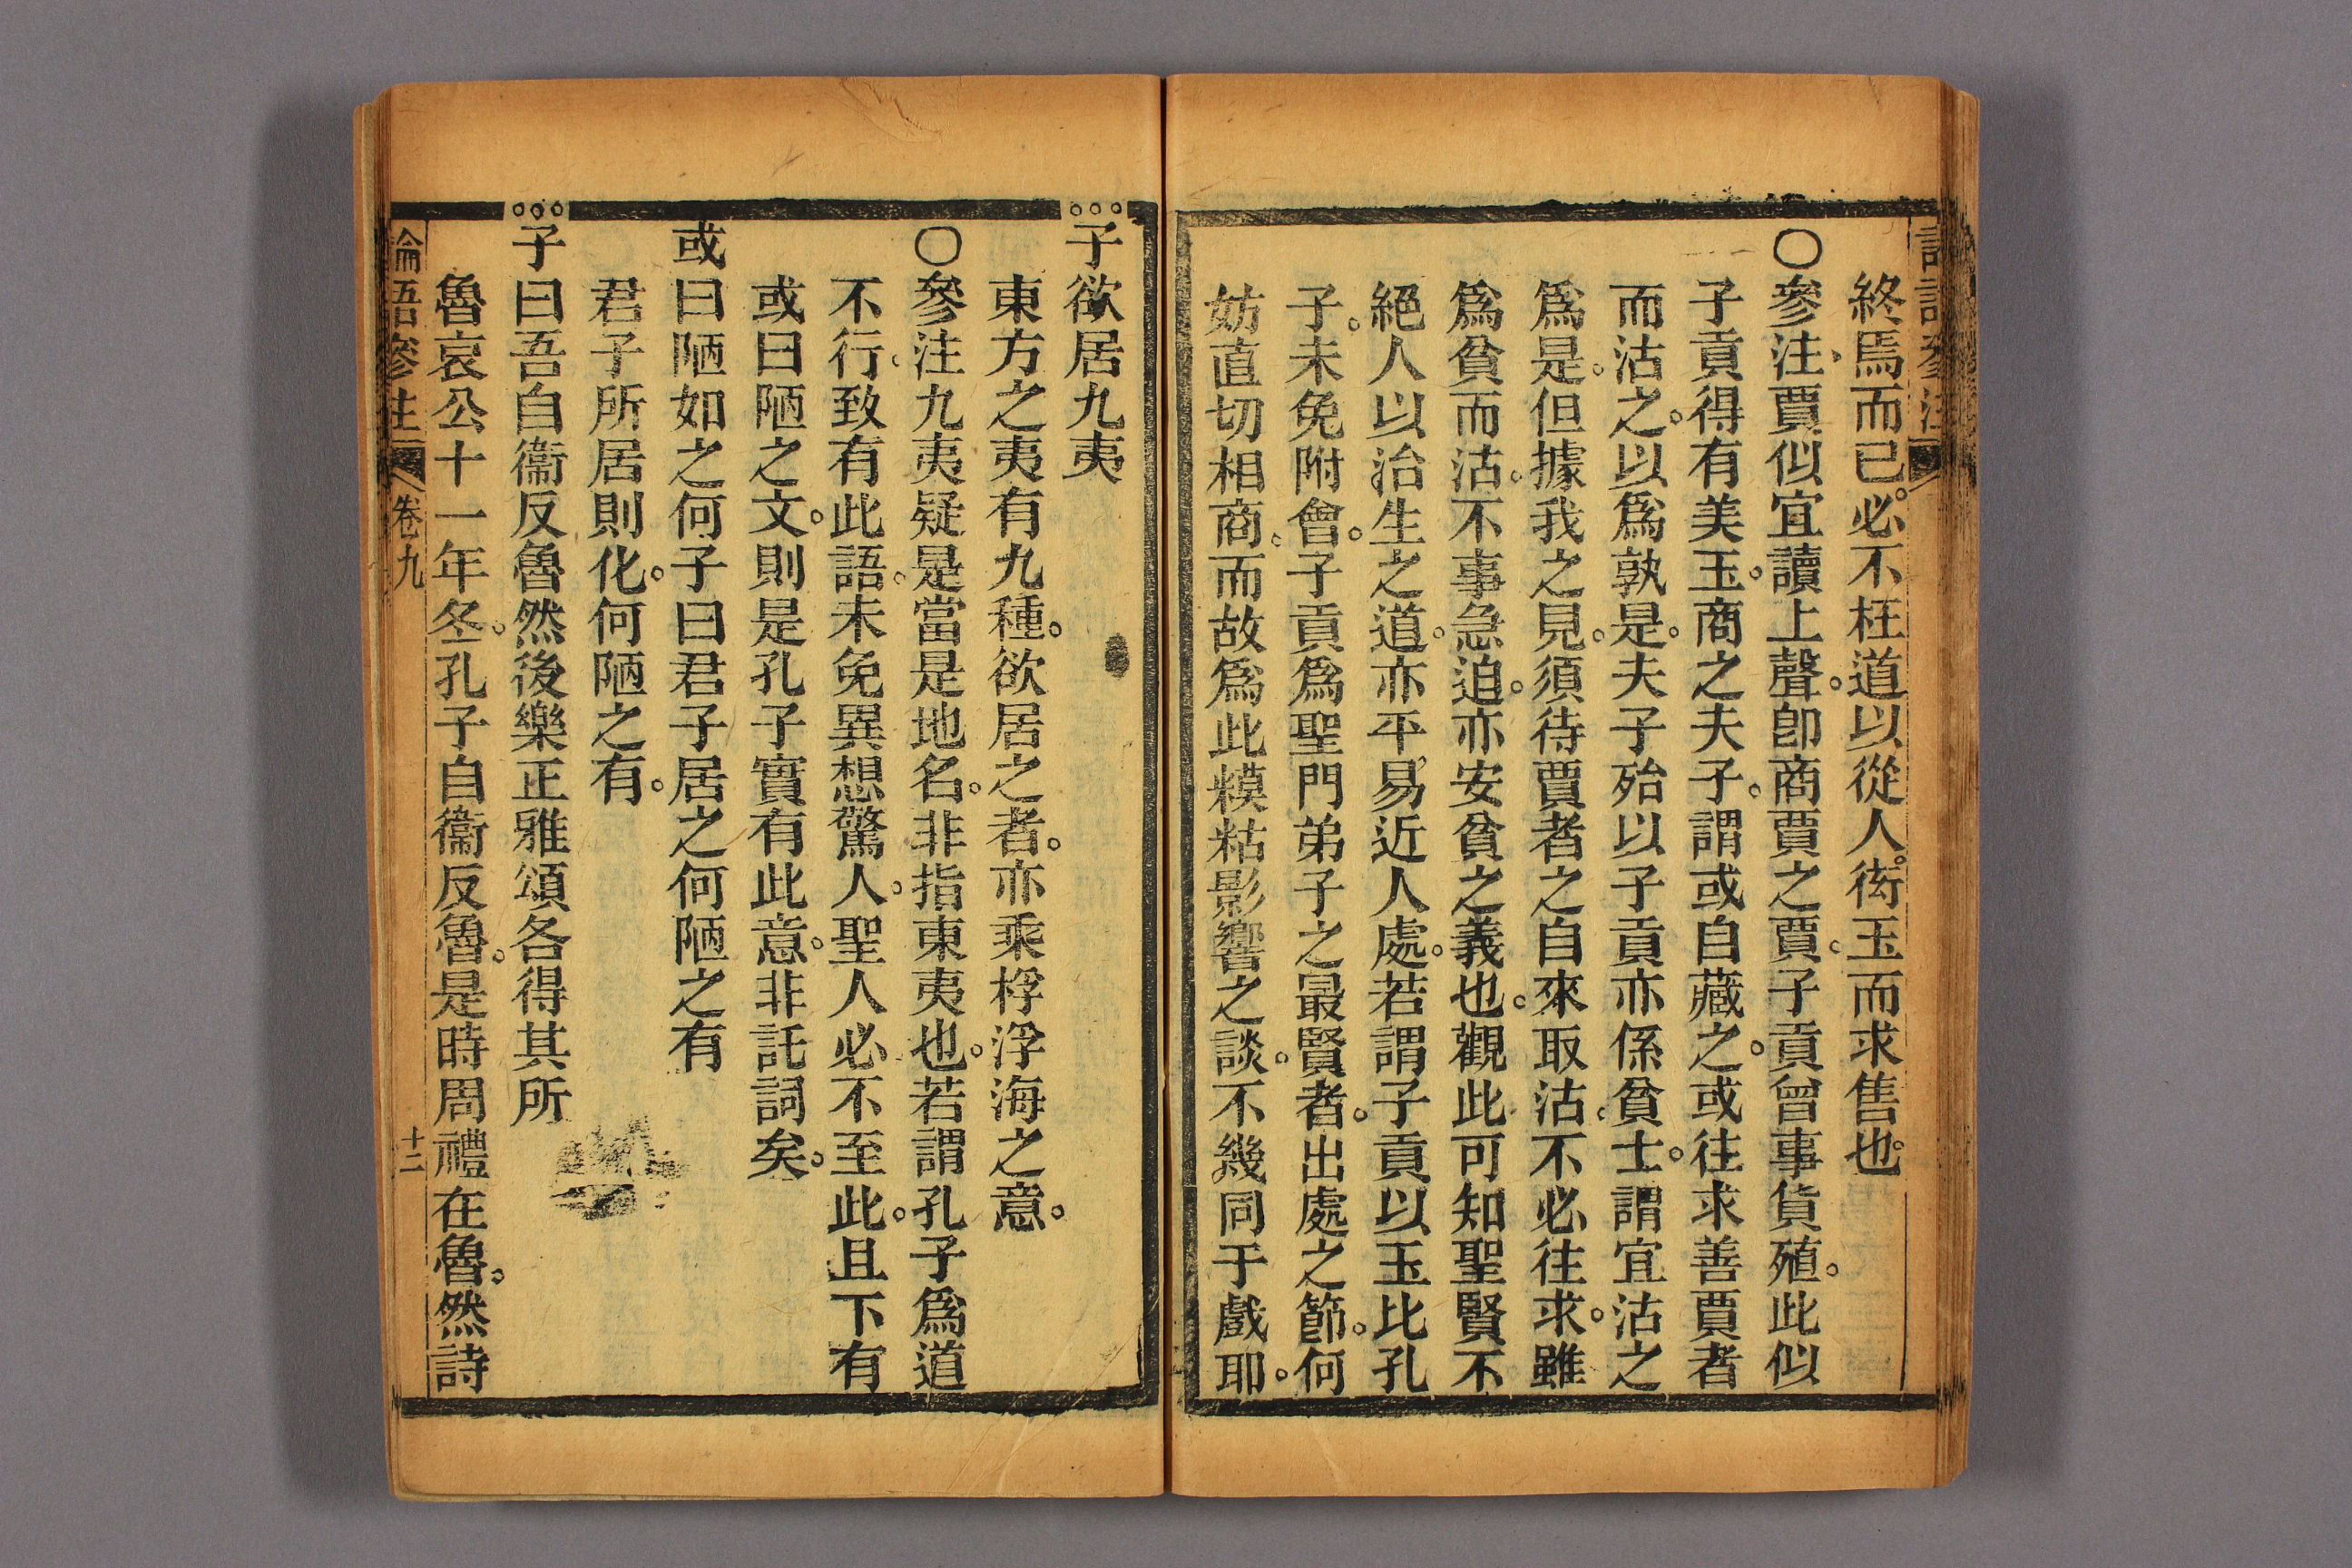 終焉而已。必不枉道以從人。衒玉而求售也。
○參注、賈似宜讀上聲。卽商賈之賈。子貢曾事貨殖。此似
子貢得有美玉。商之夫子。謂或自藏之。或往求善賈者
而沽之。以爲孰是。夫子殆以子貢亦係貧士。謂宜沽之
爲是。但據我之見。須待賈者之自來取沽。不必往求。雖
爲貧而沽。不事急迫。亦安貧之義也。觀此可知聖賢不
絕人以治生之道。亦平易近人處。若謂子貢以玉比孔
子。未免附會。子貢爲聖門弟子之最賢者。出處之節。何
妨直切相商。而故爲此糢糊影響之談。不幾同于戲耶。
子欲居九夷
東方之夷有九種。欲居之者。亦乘桴浮海之意。
○參注九夷疑是當是地名。非指東夷也。若謂孔子爲道
不行。致有此語。未免異想驚人。聖人必不至此。且下有
或曰陋之文。則是孔子實有此意。非託詞矣。
或曰陋如之何子曰君子居之何陋之有
君子所居則化。何陋之有。
子曰吾自衞反魯然後樂正雅頌各得其所
魯哀公十一年冬。孔子自衞反魯。是時周禮在魯。然詩
論語參注 卷九 十二